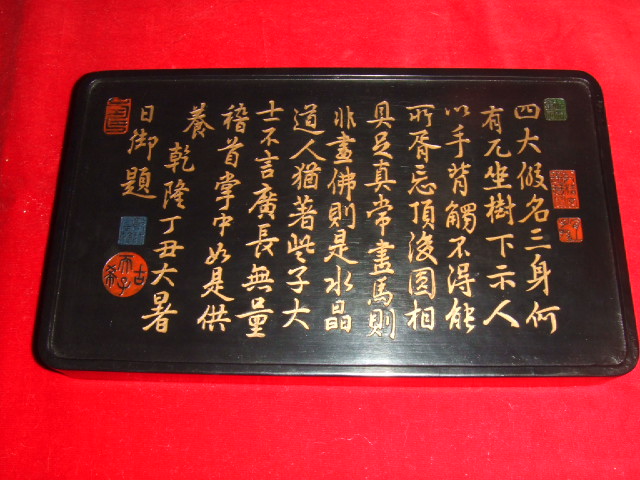 四大假名三身何
有兀坐樹下示人
以手背觸不得能
所胥忘頂後圓相
具足真常畫馬則
非畫佛則是水晶
道人猶著些子大
士不言廣長無量
稽首掌中如是供
養 乾隆丁丑大暑
日御題
古希天子